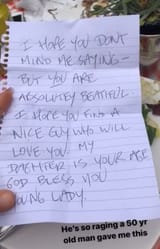 I HOPE YOU DON'T
MIND ME SAYING -
BUT YOU ARE
ABSOLUTLY BEATIFUL.
I HOPE YOU FIND A
NICE GUY WHO WILL
LOVE YOU. MY
DAEHTER IS YOUR AGE
GOD BLESS YOU
YOUNG LADY.
He's so raging a 50 yr
old man gave me this